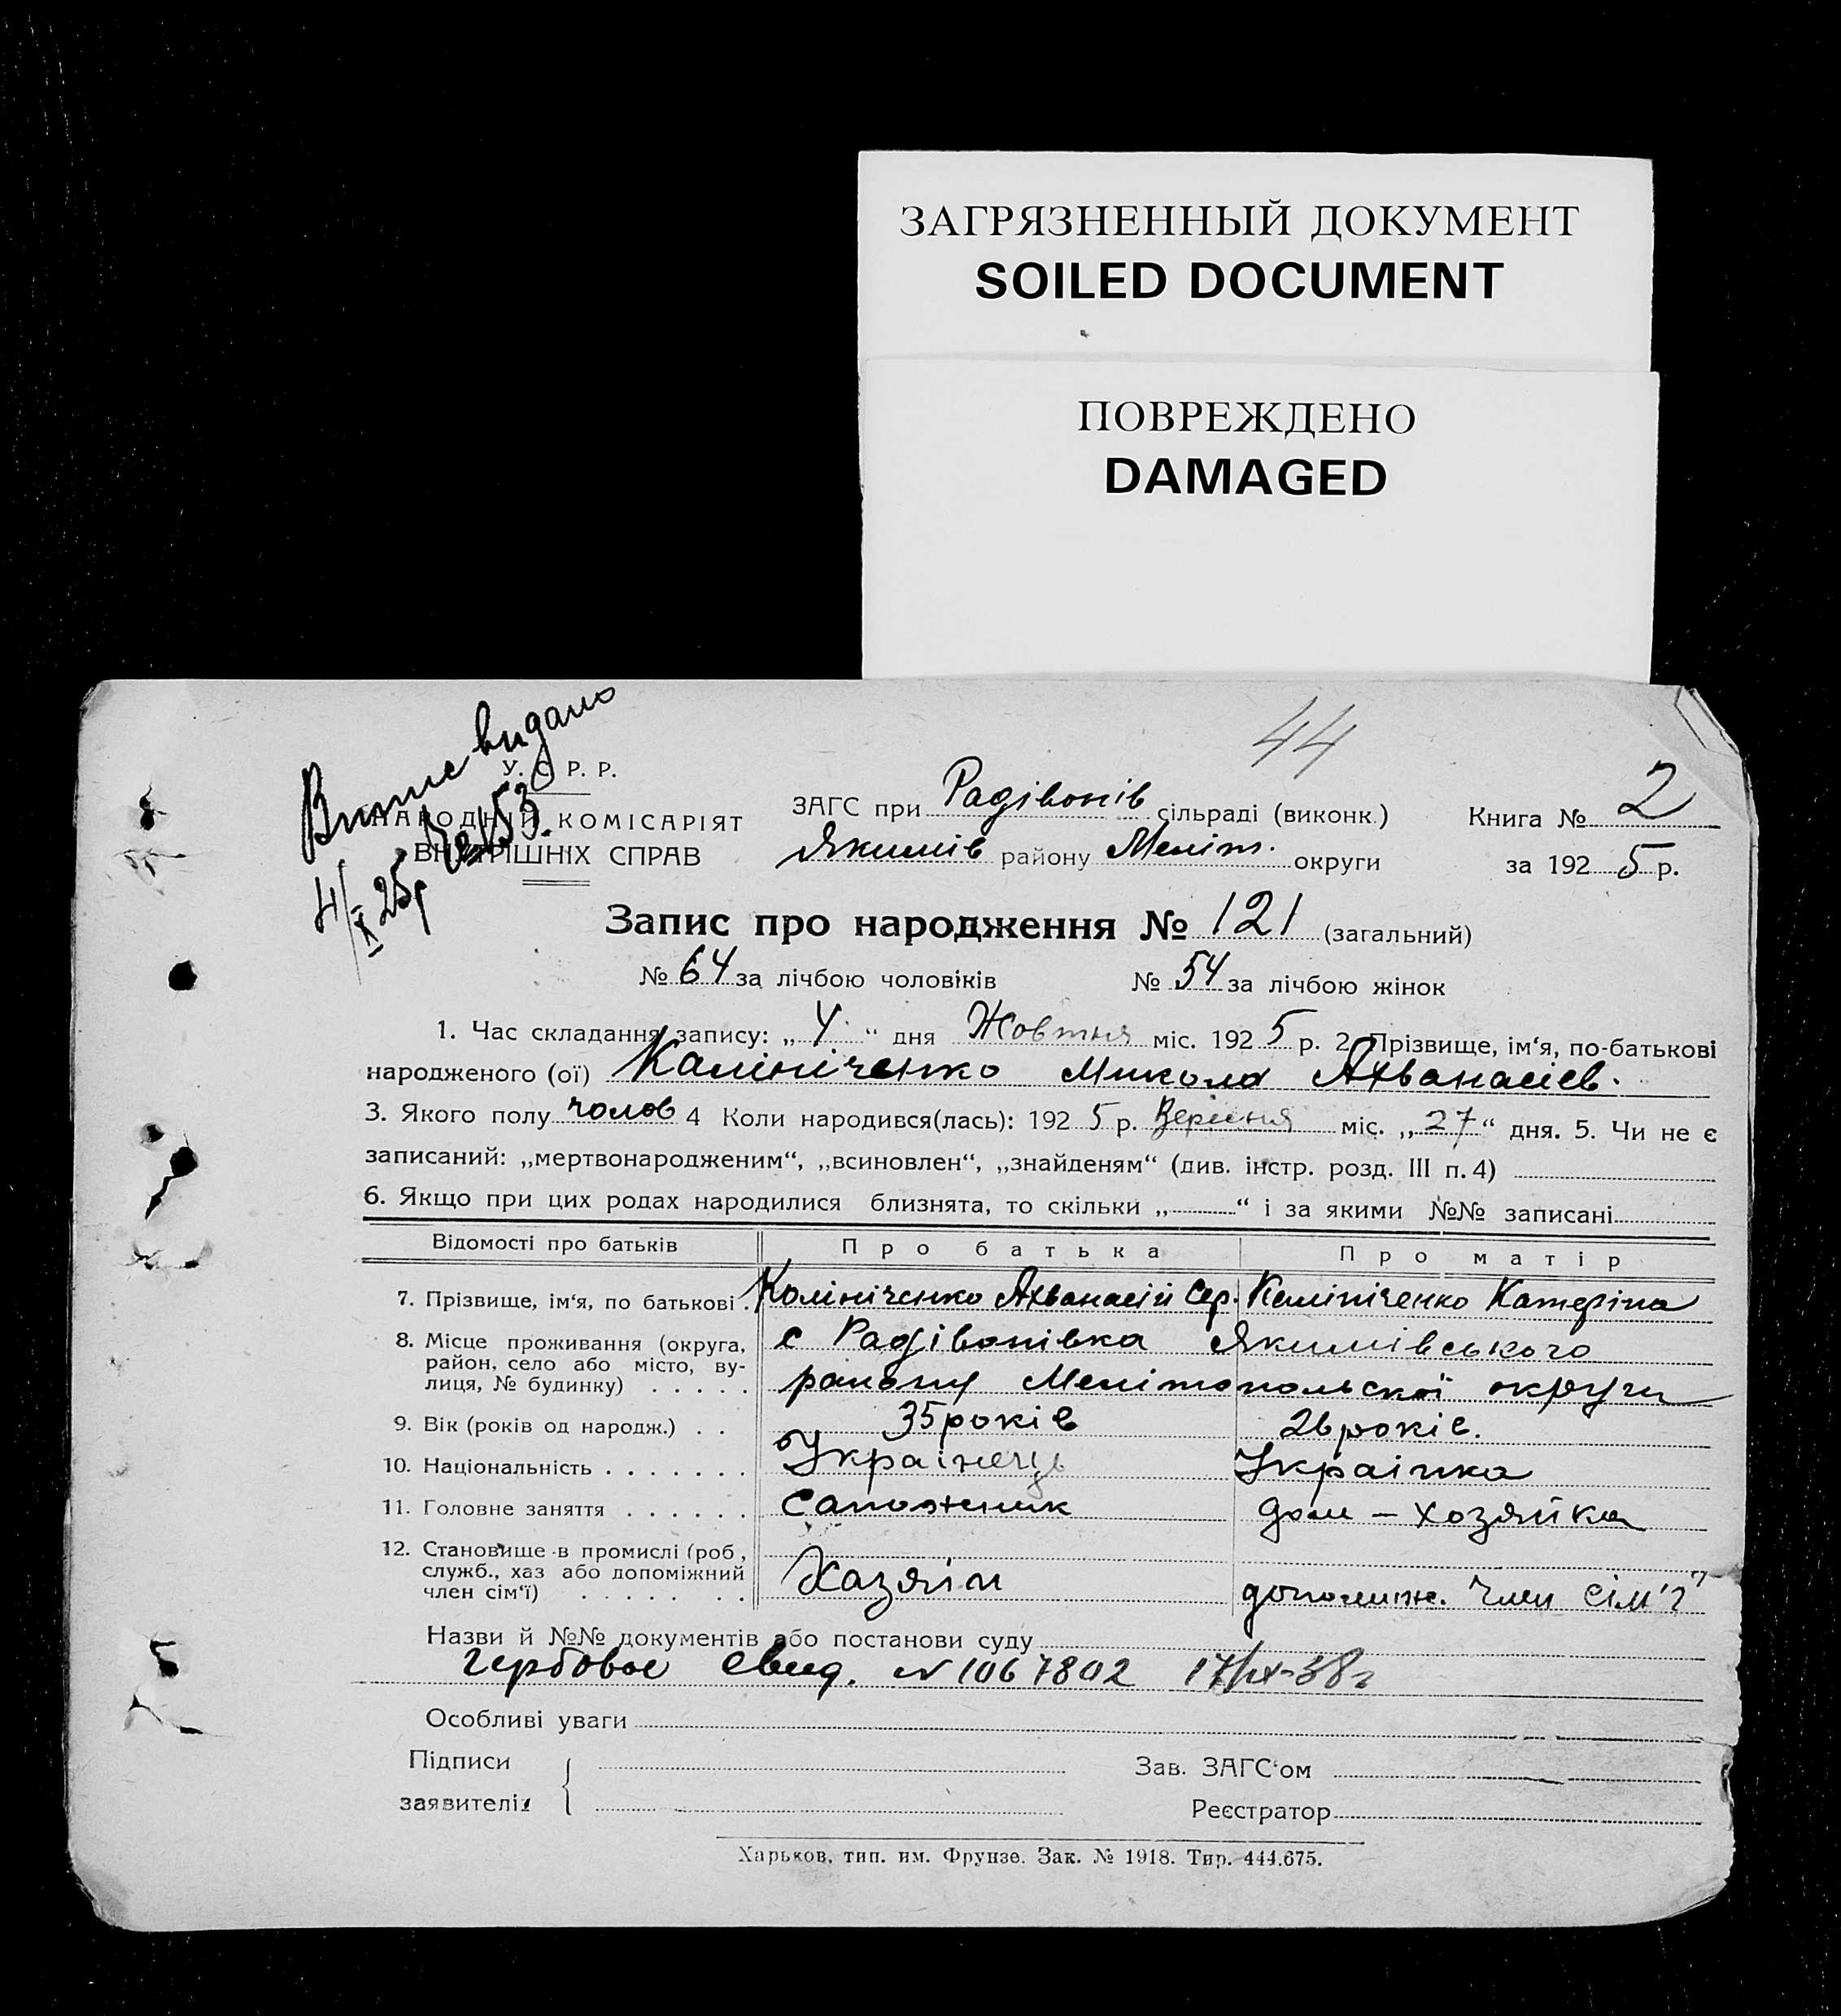 ЗАГРЯЗНЕННЫЙ ДОКУМЕНТ
SOILED DOCUMENT
ПОВРЕЖДЕНО
DAMAGED
44
Випис видано
4/X 25р №153.
У. С. Р. Р.
НАРОДНІЙ КОМІСАРІЯТ
ВНУТРІШНІХ СПРАВ
ЗАГС при Радівонів сільраді (виконк.)
Якимів району Меліт. округи
Книга № 2
за 1925 р.
Запис про народження № 121 (загальний)
№ 64 за лічбою чоловіків № 54 за лічбою жінок
1. Час складання запису: „4“ дня Жовтня міс. 1925 р. 2. Прізвище, ім‘я, по-батькові
народженого (ої) Калініченко Микола Ахванасіев.
3. Якого полу чолов 4 Коли народився(лась): 1925 р. Вересня міс. „27“ дня. 5. Чи не є
записаний: „мертвонародженим“, „всиновлен“, „знайденям“ (див. інстр. розд. III п. 4)
6. Якщо при цих родах народилися близнята, то скільки „ “ і за якими №№ записані
Відомості про батьків Про батька Про матір
7. Прізвище, ім‘я, по батькові . Калініченко Ахванасій Сер. Калініченко Катеріна
8. Місце проживання (округа, район, село або місто, ву-лиця, № будинку) . . . . . с Радівонівка Якимівського
району Мелітопольскої округи
9. Вік (років од народж.) . . 35 років 26 років.
10. Національність . . . . . . . Українець Українка
11. Головне заняття . . . . . . Сапожник дом – хозяйка
12. Становище в промислі (роб, служб., хаз або допоміжний член сім‘ї) . . . . . . . Хазяїн допоміж. член сім'ї
Назви й №№ документів або постанови суду
гербовое свид. N 1067802 17/IX-38г
Особливі уваги
Підписи
заявителів
Зав. ЗАГС‘ом
Реєстратор
Харьков, тип. им. Фрунзе. Зак. № 1918. Тир. 444.675.